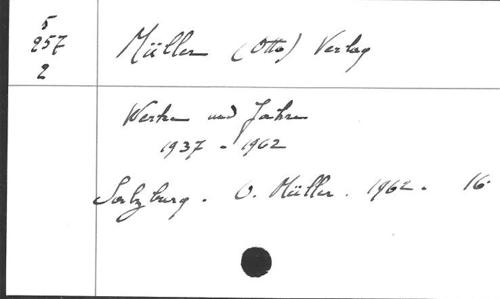 5
257
2
Müller (Otto) Verlag
Werke und Jahre
1937 - 1962
Salzburg. O. Müller. 1962. 16.